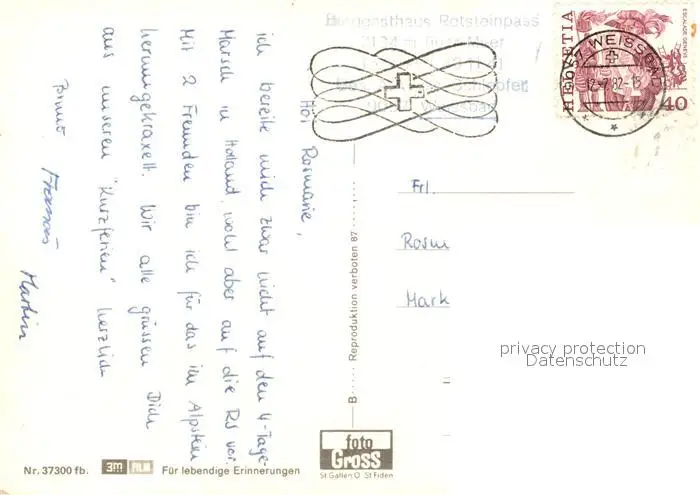 Berggasthaus Rotsteinpass
2124 m über Meer
Weissbad
HELVETIA
ESCALADE GENÈVE
40
9057 WEISSBAD
12.-7.82-15
Hoi Rosmarie,
ich bereite mich zwar nicht auf den 4-Tage-
Marsch in Holland, wohl aber auf die RS vor.
Mit 2 Freunden bin ich für das im Alpstein
herumgekraxelt. Wir alle grüssen Dich
aus unseren "Kurzferien" herzlich
Bruno
François
Martin
Frl.
Rosm
Mark
privacy protection
Datenschutz
B Reproduktion verboten 87
foto
Gross
St Gallen O. St Fiden
Nr. 37300 fb.
3m
Für lebendige Erinnerungen